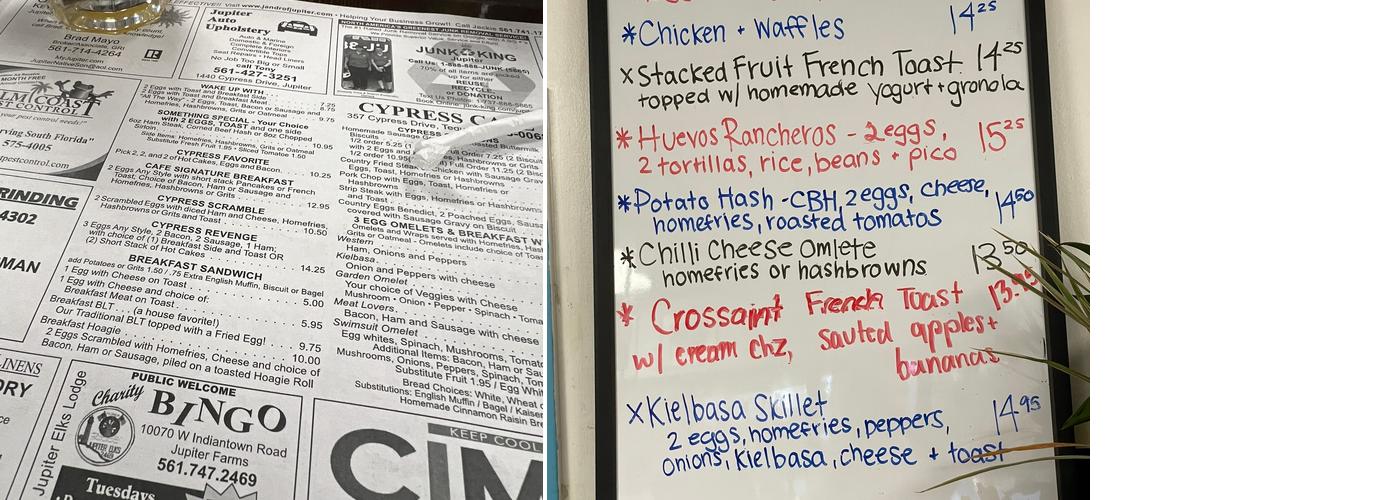 Visit www.jandrofjupiter.com • Helping Your Business Grow!! Call Jackie 561.741.17
Brad Mayo
Broker/Associate, GRI
561-714-4264
MyJupiter.com
JupiterNativeSon@aol.com
Jupiter
Auto
Upholstery
Auto & Marine
Domestic & Foreign
Convertible Tops
Seat Repairs • Head Liners
No Job Too Big or Small
call Tony
561-427-3251
1440 Cypress Drive, Jupiter
NORTH AMERICA'S GREENEST JUNK REMOVAL SERVICE!
JUNK KING
REUSE,
RECYCLE,
or DONATION.
MONTH FREE
PEST CONTROL
your pest control needs"
rving South Florida"
575-4005
pestcontrol.com
RINDING
4302
MAN
LINENS
DRY
WAKE UP WITH
2 Eggs with Toast and Breakfast Meat 8.75
"All The Way" - 2 Eggs, Toast, Bacon or Sausage and
Homefries, Hashbrowns, Grits or Oatmeal 9.75
SOMETHING SPECIAL - Your Choice
with 2 EGGS, TOAST and one side
6oz Ham Steak, Corned Beef Hash or 8oz Chopped
Sirloin 10.95
Side Items: Homefries, Hashbrowns, Grits or Oatmeal
Substitute Fresh Fruit 1.95 • Sliced Tomatoe 1.50
CYPRESS FAVORITE
Pick 2, 2, and 2 of Hot Cakes, Eggs and Bacon. 10.25
CAFE SIGNATURE BREAKFAST
2 Eggs Any Style with short stack Pancakes or French
Toast; Choice of Bacon, Ham or Sausage and
Homefries, Hashbrowns or Grits 12.95
CYPRESS SCRAMBLE
2 Scrambled Eggs with diced Ham and Cheese, Homefries,
Hashbrowns or Grits and Toast 10.50
CYPRESS REVENGE
3 Eggs Any Style, 2 Bacon, 2 Sausage, 1 Ham;
with choice of (1) Breakfast Side and Toast OR
(2) Short Stack of Hot Cakes 14.25
BREAKFAST SANDWICH
add Potatoes or Grits 1.50 / .75 Extra English Muffin, Biscuit or Bagel
1 Egg with Cheese on Toast 5.00
1 Egg with Cheese and choice of:
Breakfast Meat on Toast 5.95
Breakfast BLT . . . (a house favorite!)
Our Traditional BLT topped with a Fried Egg! 9.75
Breakfast Hoagie 10.00
2 Eggs Scrambled with Homefries, Cheese and choice of
Bacon, Ham or Sausage, piled on a toasted Hoagie Roll
CYPRESS CA
357 Cypress Drive, Teq
Homemade Sausage
Biscuits
1/2 order 5.25
Full Order 7.25 (2 Biscuit
with 2 Eggs and
1/2 order 10.95
Full Order 11.25 (2 Bisc
Country Fried Steak
Chicken with Sausage Gravy
Eggs, Toast, Homefries or Hashbrowns
Pork Chop with Eggs, Toast, Homefries or
Hashbrowns
Strip Steak with Eggs, Homefries, Hashbrowns
and Toast
Country Eggs Benedict, 2 Poached Eggs, Sausa
covered with Sausage Gravy on Biscuit
3 EGG OMELETS & BREAKFAST W
Omelets and Wraps served with Homefries, Hash
Grits or Oatmeal - Omelets include choice of Toas
Western
Ham, Onions and Peppers
Kielbasa
Onion and Peppers with cheese
Garden Omelet
Your choice of Veggies with Cheese
Mushroom • Onion • Pepper • Spinach • Toma
Meat Lovers
Bacon, Ham and Sausage with cheese
Swimsuit Omelet
Egg whites, Spinach, Mushrooms, Tomato
Additional Items: Bacon, Ham or Sau
Mushrooms, Onions, Peppers, Spinach, Tom
Substitute Fruit 1.95 / Egg Whit
Bread Choices: White, Wheat
Substitutions: English Muffin / Bagel / Kaiser
Homemade Cinnamon Raisin Bre
Jupiter Elks Lodge
PUBLIC WELCOME
Charity
BINGO
10070 W Indiantown Road
Jupiter Farms
561.747.2469
Tuesdays
KEEP COOL
CIM
*Chicken + Waffles 14 25
x Stacked Fruit French Toast 14 25
topped w/ homemade yogurt + granola
* Huevos Rancheros - 2 eggs, 15 25
2 tortillas, rice, beans + pico
*Potato Hash - CBH, 2 eggs, cheese, 14 50
homefries, roasted tomatos
*Chilli Cheese Omlete 13 50
homefries or hashbrowns
* Crossaint French Toast 13.95
w/ cream chz, sauted apples +
bananas
x Kielbasa Skillet 14 95
2 eggs, homefries, peppers,
onions, kielbasa, cheese + toast